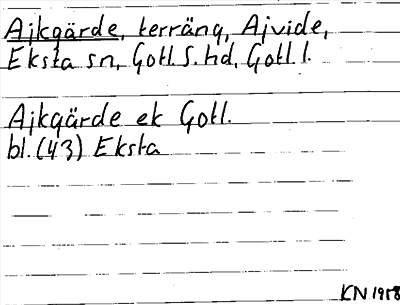 Ajkgärde, terräng, Ajvide,
Eksta sn, Gotl. S. hd, Gotl. l.
Ajkgärde ek Gotl.
bl. (43) Eksta
KN 1958